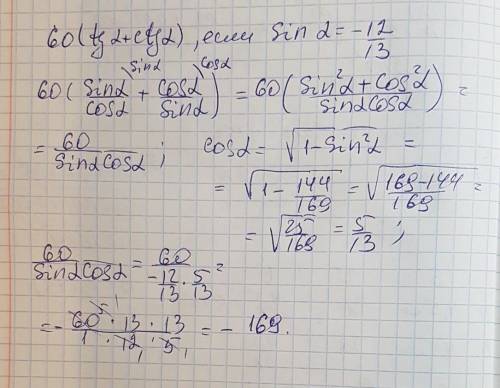 60(tgα+ctgα), если Sin α = -12/13
60(Sinα/Cosα + Cosα/Sinα) = 60(Sin²α+Cos²α/SinαCosα) =
= 60/SinαCosα; Cosα = √1-Sin²α =
= √1-144/169 = √169-144/169 =
= √25/169 = 5/13;
60/SinαCosα = 60/-12/13·5/13 =
= -60·13·13/1·12·5 = -169.